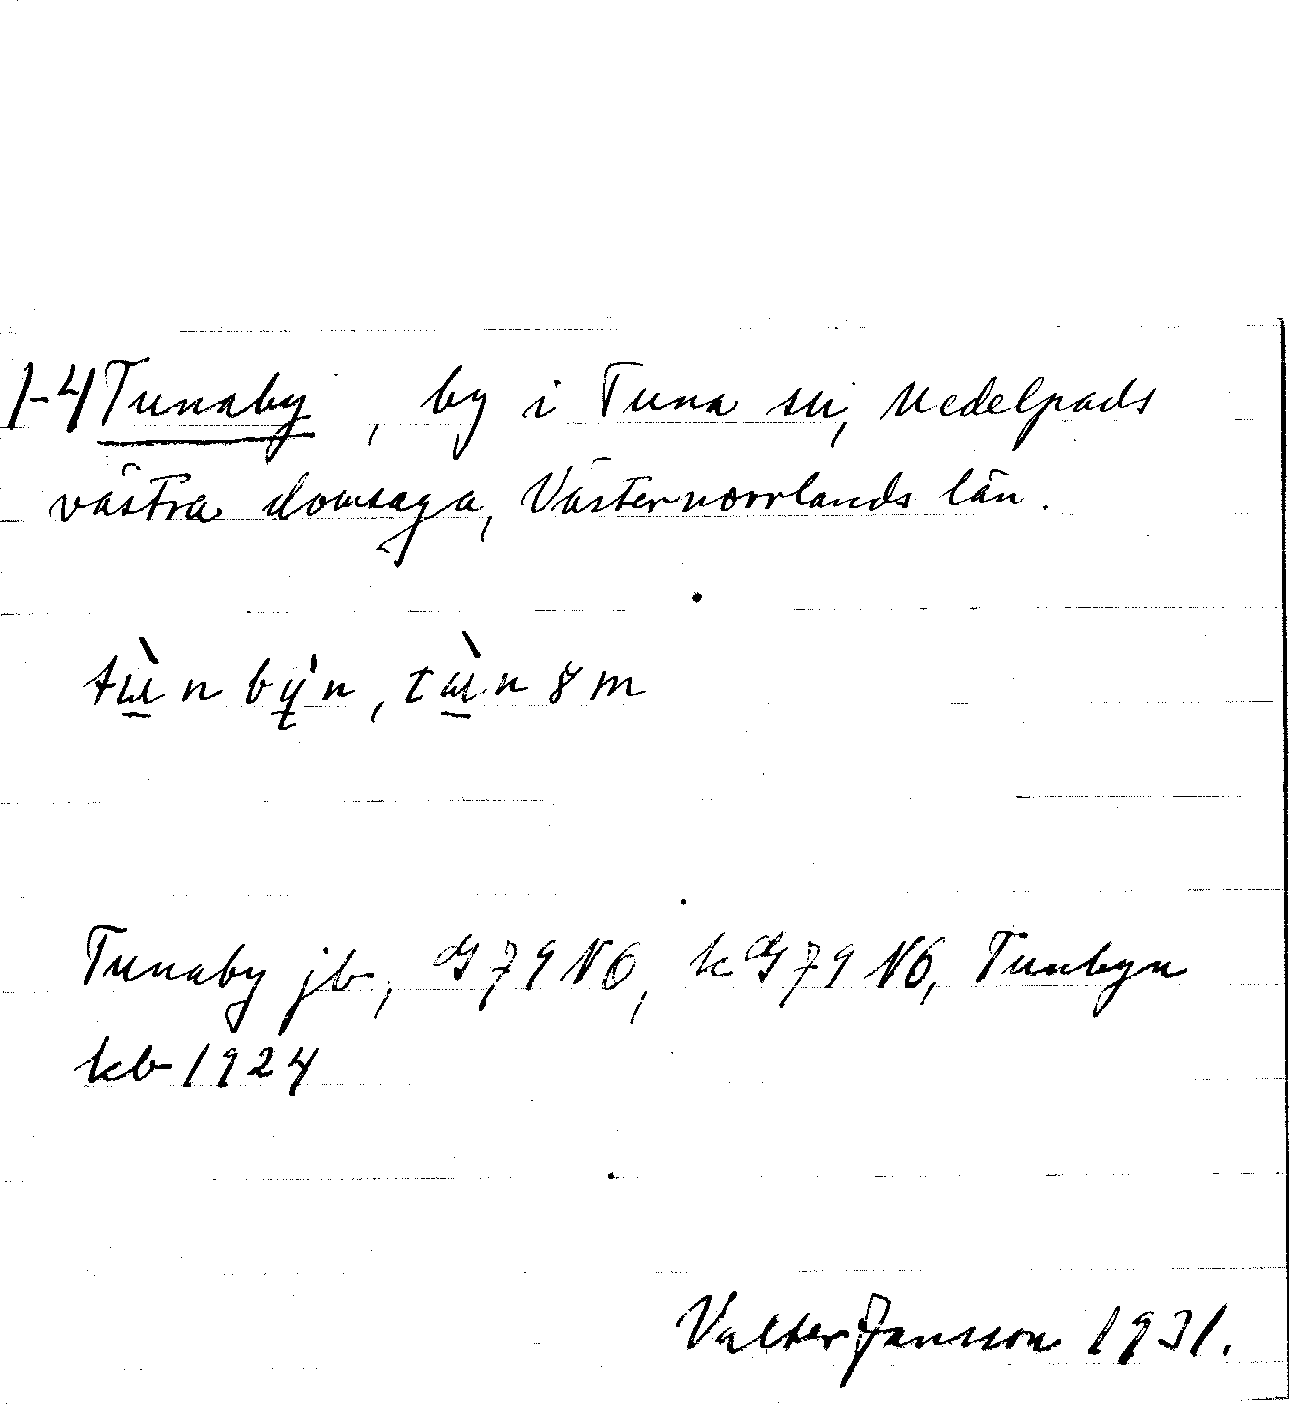 1-4 Tunaby, by i Tuna sn, Medelpads
västra domsaga, Västernorrlands län.
tɯ̀n bý̨n, tɯ̀n 8 m
Tunaby jb, G 79 N6, k G 79 N6, Tunbyn
kb 1924
Valter Jansson 1931.